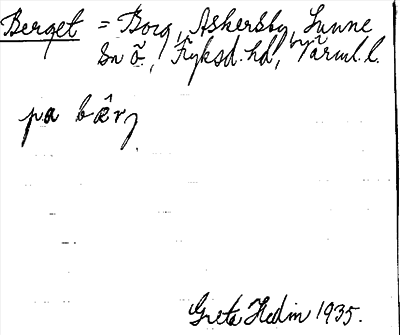 Berget = Borg, Askersby, Sunne
Sn ö., Fryksd. hd, Värml. l.
pa bærj
Greta Hedin 1935.